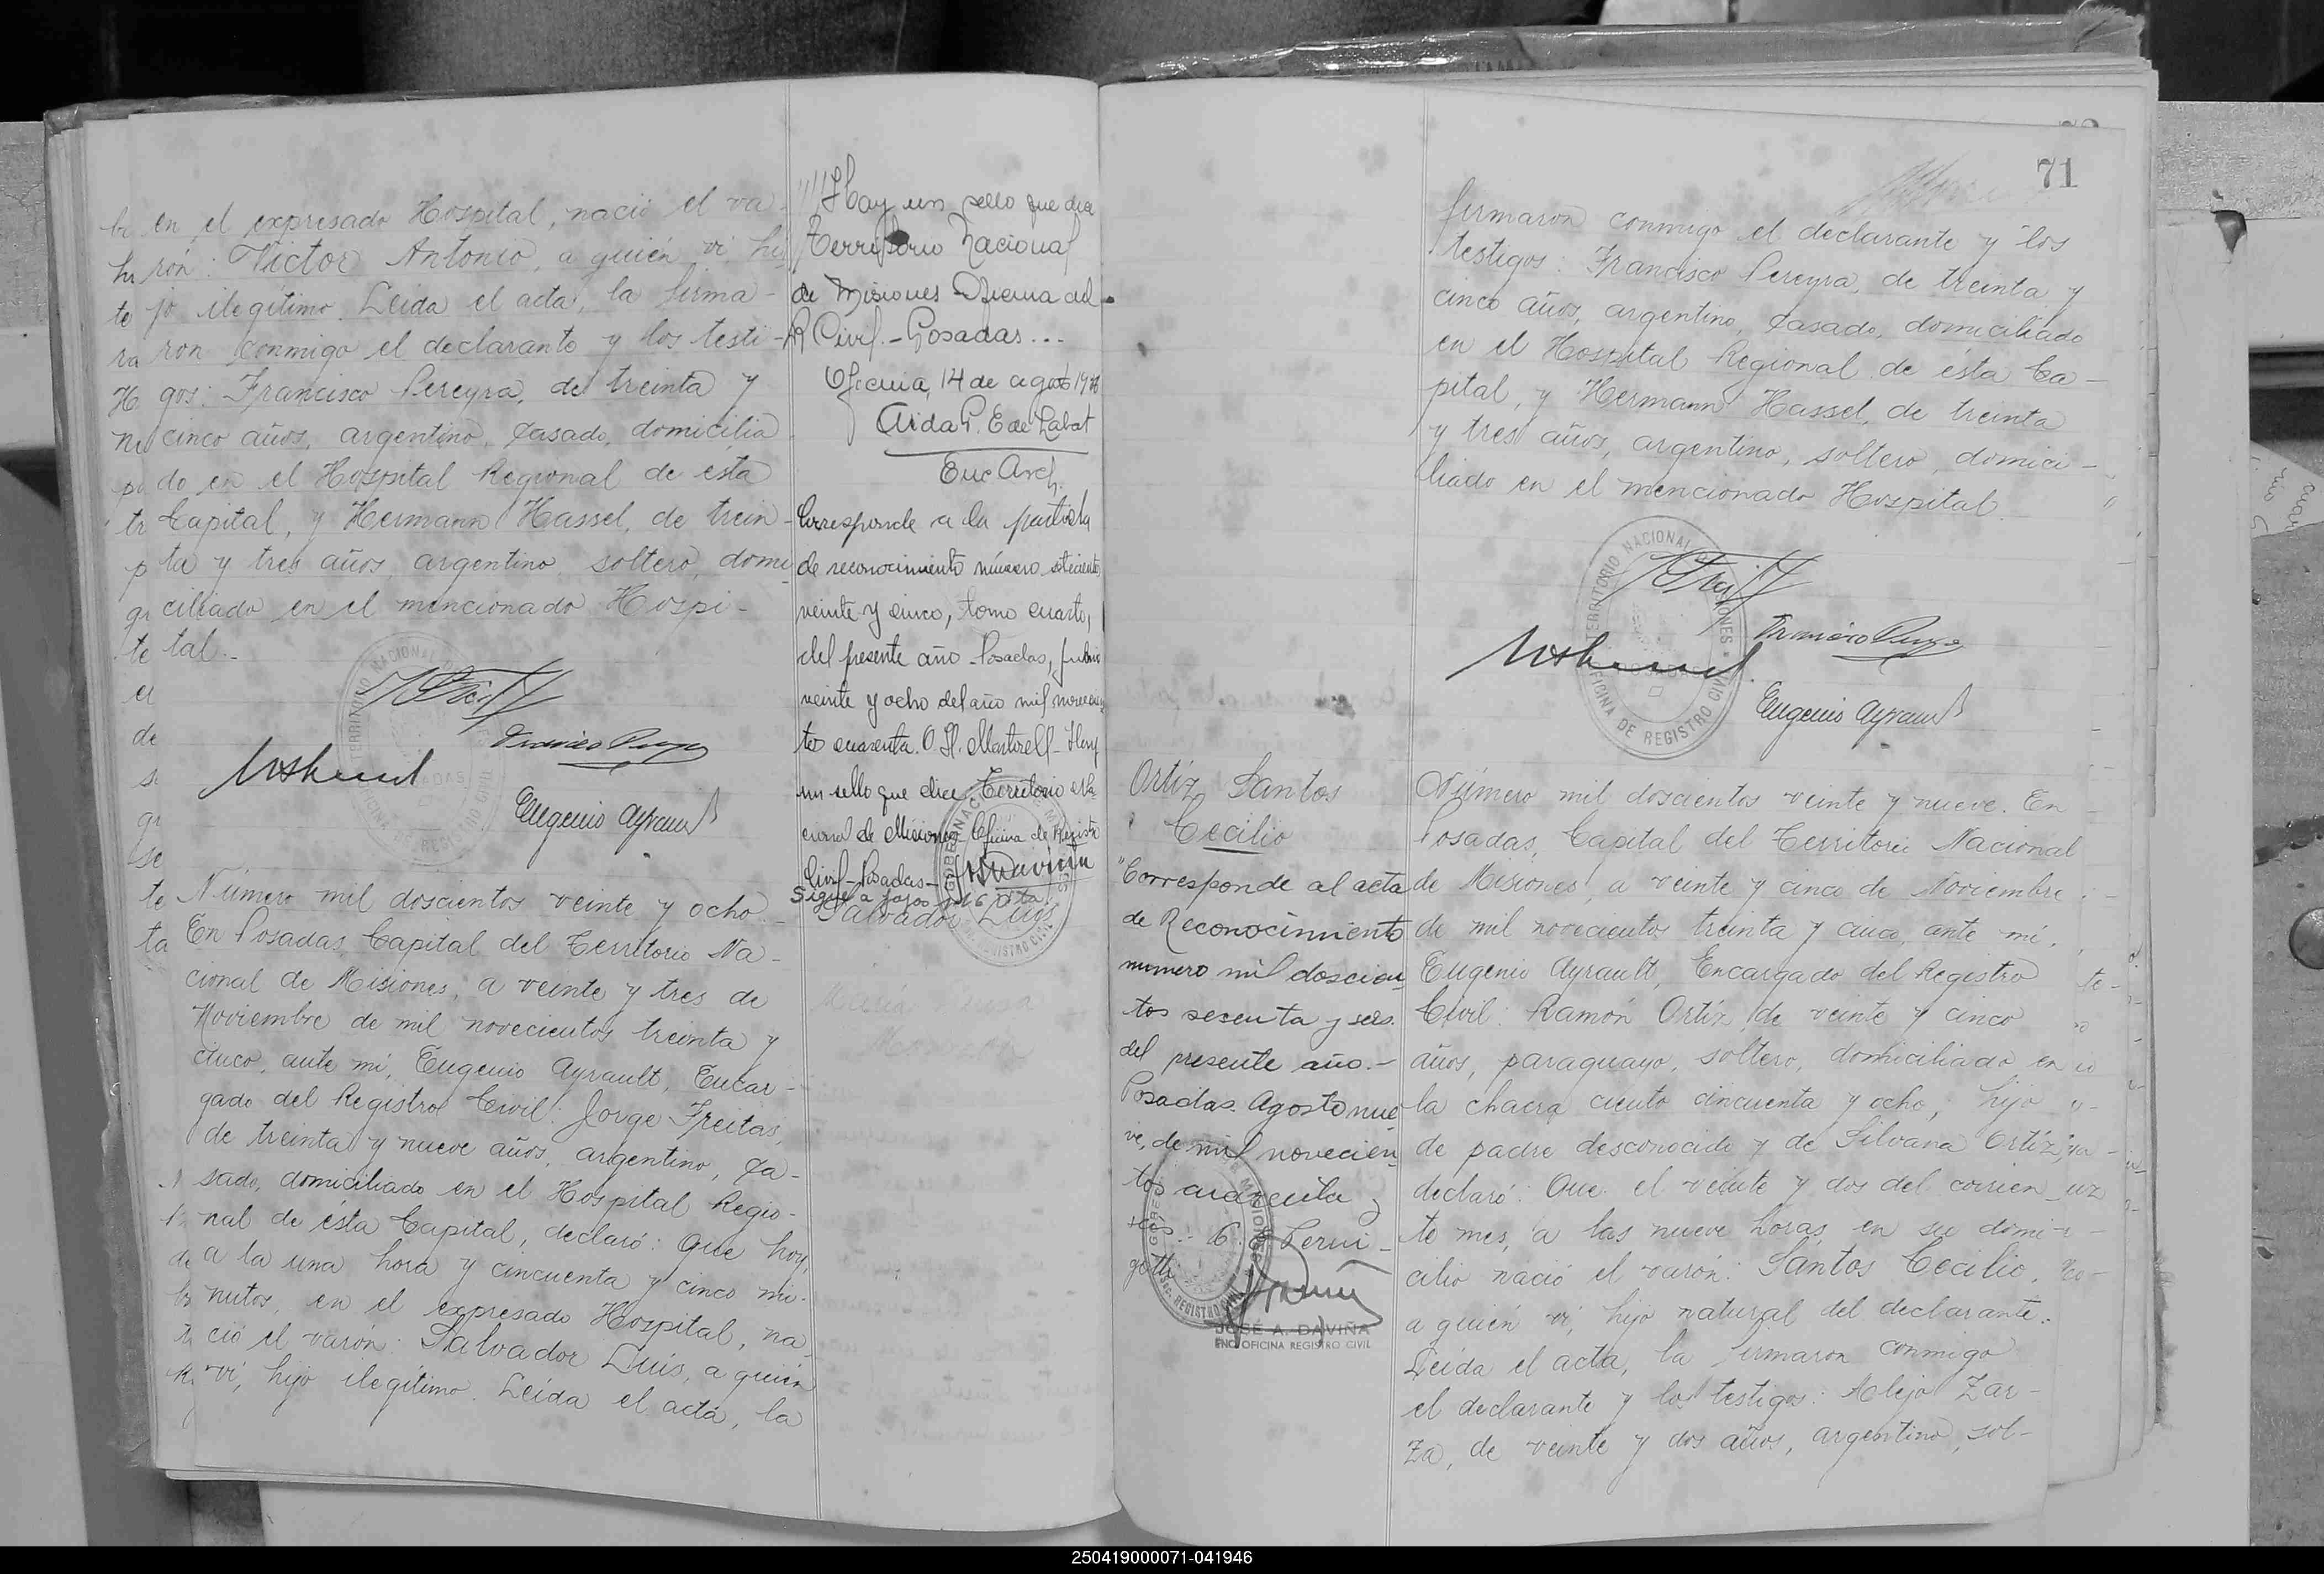 en el expresado Hospital, nació el va-
rón: Victor Antonio, a quién ví, hi-
jo ilegítimo. Leída el acta, la firma-
ron conmigo el declarante y los testi-
gos: Francisco Pereyra, de treinta y
cinco años, argentino, casado, domicilia-
do en el Hospital Regional de ésta
Capital, y Hermann Hassel, de trein-
ta y tres años argentino, soltero, domi-
ciliado en el mencionado Hospi-
tal.-
Francisco Pereyra
Eugenio Ayrault
Número mil doscientos veinte y ocho.-
En Posadas, Capital del Territorio Na-
cional de Misiones, a veinte y tres de
Noviembre de mil novecientos treinta y
cinco, ante mí, Eugenio Ayrault, Encar-
gado del Registro Civil: Jorge Freitas,
de treinta y nueve años, argentino, ca-
sado, domiciliado en el Hospital Regio-
nal de ésta Capital, declaró: Que hoy,
a la una hora y cincuenta y cinco mi-
nutos, en el expresado Hospital, na-
ció el varón: Salvador Luís, a quién
ví, hijo ilegítimo. Leída el acta, la
Hay un sello que dice
Territorio Nacional
de Misiones - Oficina del
R Civil.- Posadas...
Oficina, 14 de agosto
Aida P. E de Labat
Enc Arch.
Corresponde a la partida
de reconocimiento número setecientos
veinte y cinco, tomo cuarto,
del presente año - Posadas,
veinte y ocho del año mil novecien-
tos cuarenta. O. H. Martorell - Hay
un sello que dice: Territorio Na-
cional de Misiones - Oficina de Registro
Civil - Posadas -
Sigue a fojas
Salvador Luís
71
firmaron conmigo el declarante y los
testigos: Francisco Pereyra, de treinta y
cinco años, argentino, casado, domiciliado
en el Hospital Regional de ésta Ca-
pital, y Hermann Hassel, de treinta
y tres años, argentino, soltero, domici-
liado en el mencionado Hospital.
TERRITORIO NACIONAL DE MISIONES
OFICINA DE REGISTRO CIVIL
Francisco Pereyra
Eugenio Ayrault
Ortíz, Santos
Cecilio
"Corresponde al acta
de Reconocimiento
numero mil doscien-
tos sesenta y seis.
del presente año.-
Posadas. Agosto nue-
ve, de mil novecien-
tos cuarenta y
JOSÉ A. DAVIÑA
ENC. OFICINA REGISTRO CIVIL
Número mil doscientos veinte y nueve. En
Posadas, Capital del Territorio Nacional
de Misiones, a veinte y cinco de Noviembre
de mil novecientos treinta y cinco, ante mí,
Eugenio Ayrault, Encargado del Registro
Civil: Ramón Ortíz, de veinte y cinco
años, paraguayo, soltero, domiciliado en
la chacra ciento cincuenta y ocho, hijo
de padre desconocido y de Silvana Ortíz,
declaró: Que el veinte y dos del corrien-
te mes, a las nueve horas, en su domi-
cilio nació el varón: Santos Cecilio,
a quién ví, hijo natural del declarante.
Leída el acta, la firmaron conmigo
el declarante y los testigos: Alejo Zar-
za, de veinte y dos años, argentino, sol-
250419000071-041946